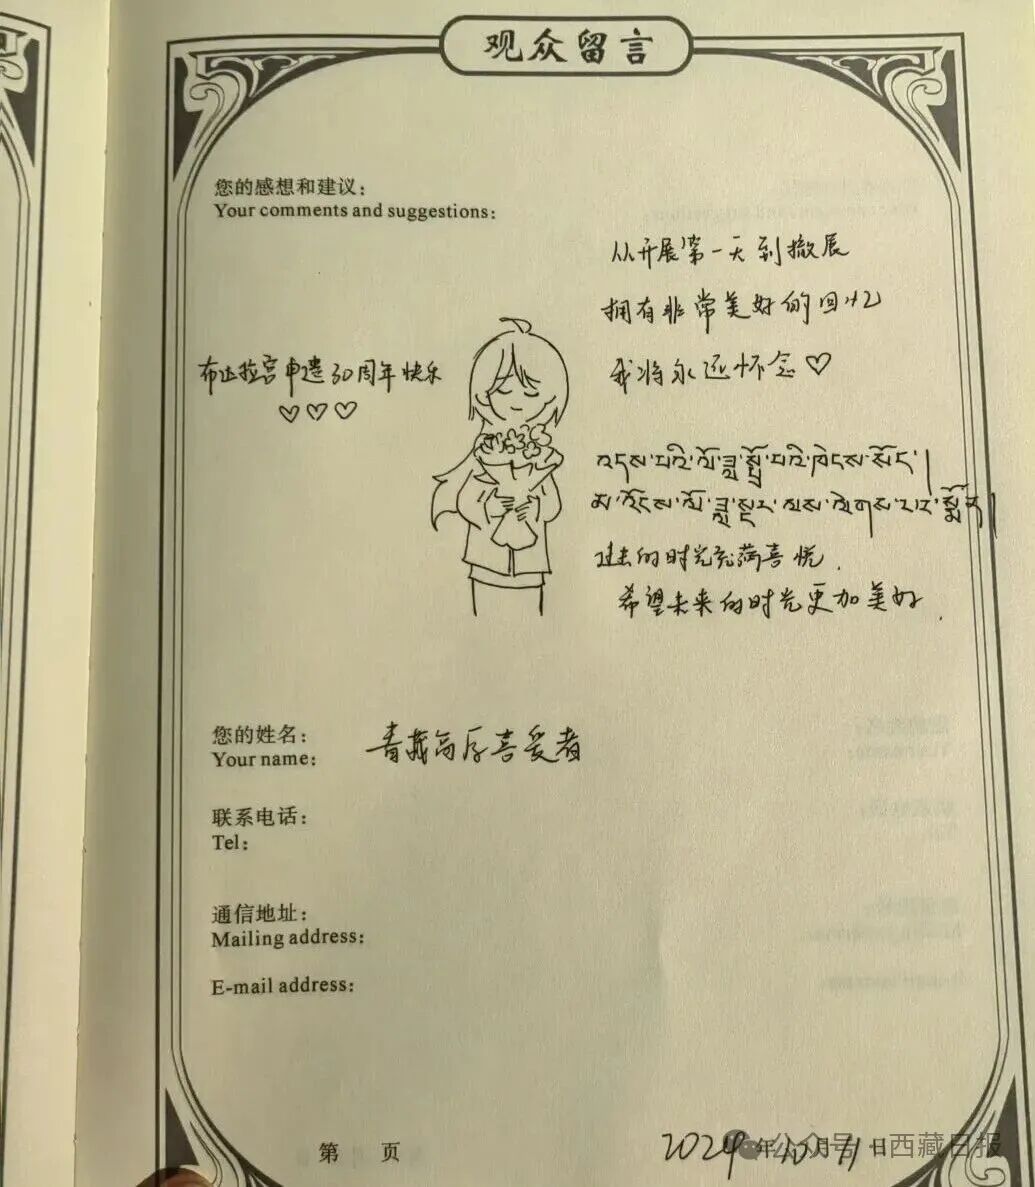 观众留言
您的感想和建议：
Your comments and suggestions:
从开展第一天到撤展
拥有非常美好的回忆
我将永远怀念♡
布达拉宫申遗30周年快乐
♡♡♡
འདས་པའི་ལོ་ཟླ་སྤྲོ་བའི་ཁེངས་སོང་།
མ་འོངས་ལོ་ཟླ་སྔར་ལས་ལེགས་པར་སྨོན།
过去的时光充满喜悦.
希望未来的时光更加美好.
您的姓名：
Your name:
青藏高原喜爱者
联系电话：
Tel:
通信地址：
Mailing address:
E-mail address:
第 页
2024年10月11日
公众号·西藏日报